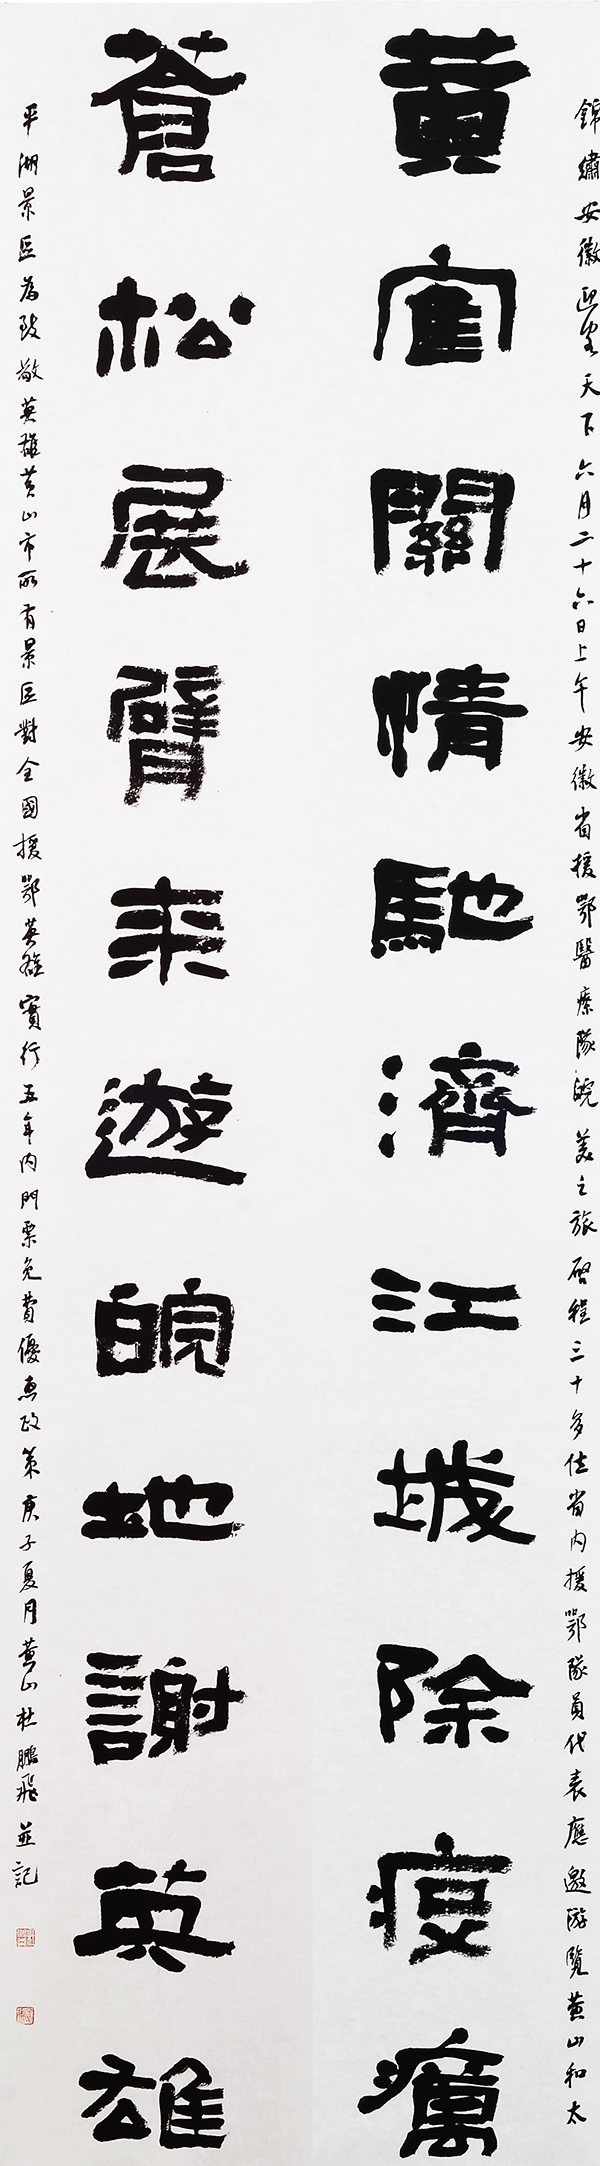 錦繡安徽迎客天下六月二十六日上午安徽省援鄂醫療隊皖美之旅啓程三十多位省內援鄂隊員代表應邀游覽黃山和太
黃寉關情馳濟江城除疫癘
蒼松展臂來遊皖地謝英雄
平湖景區為致敬英雄黃山市所有景區對全國援鄂英雄實行五年內門票免費優惠政策庚子夏月黃山杜鵬飛並記